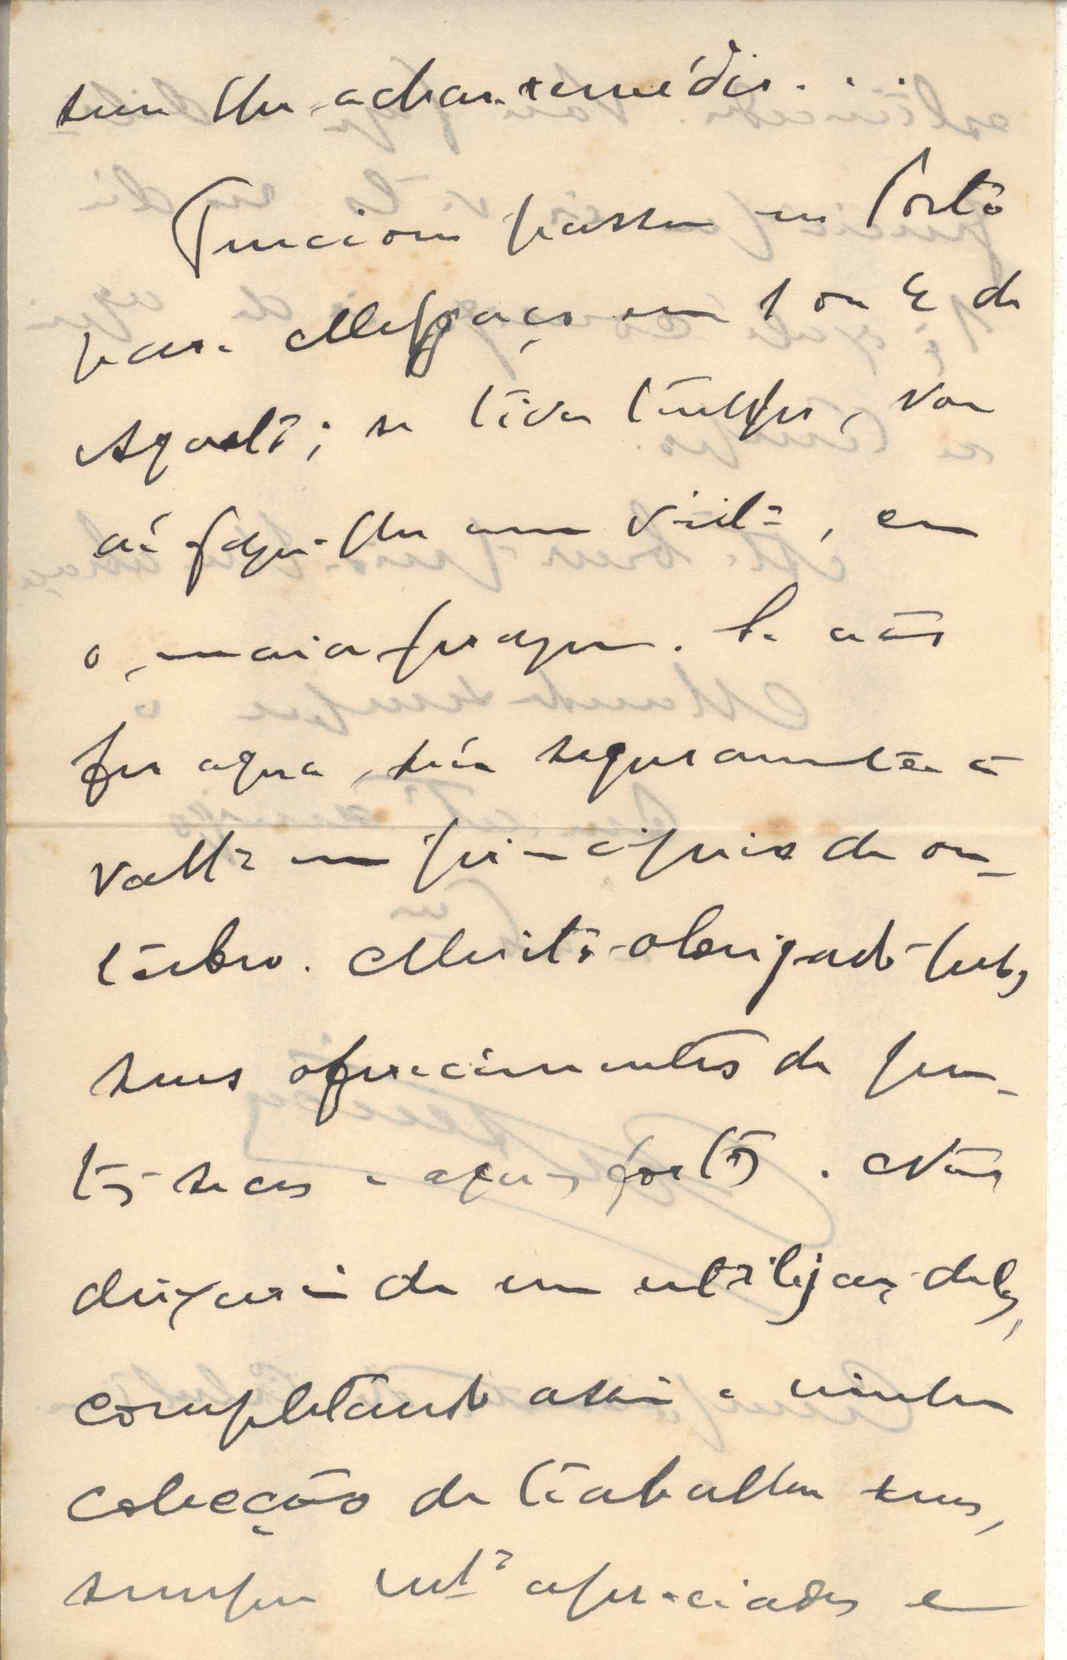 sem lhe achar remédio...
Tenciono passar no Porto
para Melgaço em 1 ou 2 de
Agosto; se tiver tempo, vou
aí fazer-lhe uma visita, com
o maior prazer. Se não
for agora, será seguramente à
volta em principios de ou-
tubro. Muito obrigado pelos
seus oferecimentos de pon-
tas secas e aguas fortes. Não
deixarei de me utilizar deles,
completando assim a minha
colecção de trabalhos seus,
sempre mtº apreciados e